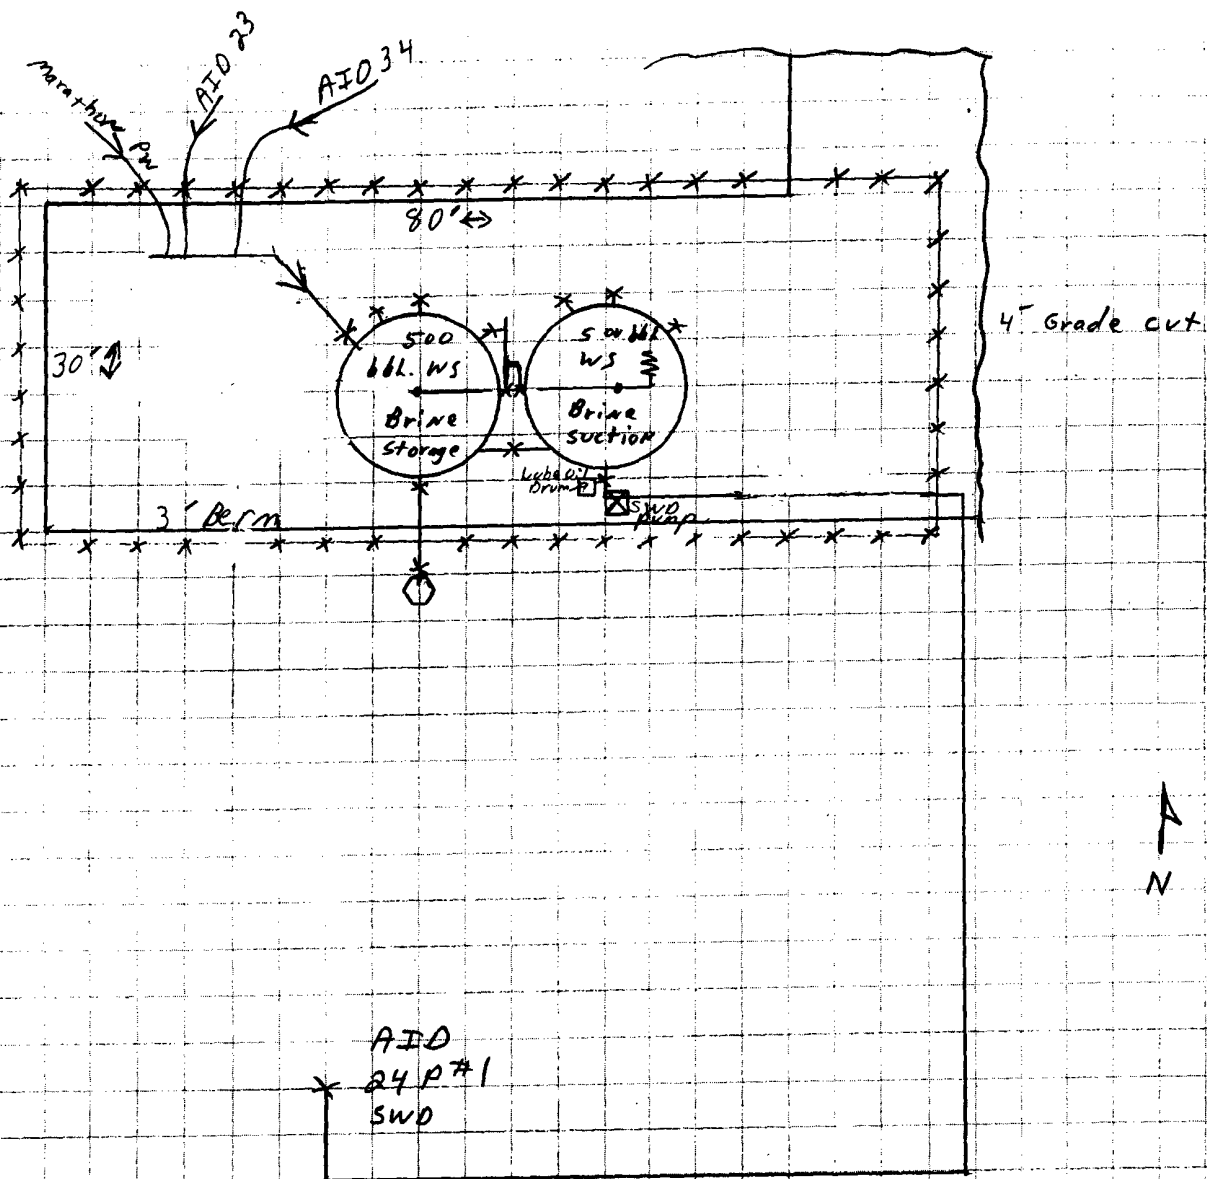 Marathon PW
AID 23
AID 34
80'
30'
4' Grade cut
500
bbl. WS
Brine
Storage
500 bbl
WS
Brine
Suction
Lube Oil
Drum
SWD
Pump
3' Berm
N
AID
24 P #1
SWD